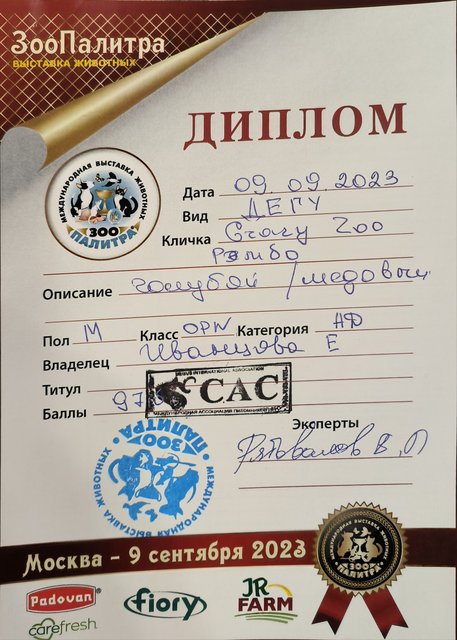 ЗооПалитра
ВЫСТАВКА ЖИВОТНЫХ
ДИПЛОМ
МЕЖДУНАРОДНАЯ ВЫСТАВКА ЖИВОТНЫХ
ЗОО
ПАЛИТРА
Дата 09.09.2023
Вид ДЕГУ
Кличка Crazy Zoo
Рэмбо
Описание голубой / медовый
Пол М Класс OPN Категория АД
Владелец Иванцова Е
Титул
CAC
Баллы 97
Эксперты
ЗОО
ПАЛИТРА
МЕЖДУНАРОДНАЯ ВЫСТАВКА ЖИВОТНЫХ
Москва – 9 сентября 2023
ЗОО
ПАЛИТРА
Padovan
fiory
JR
FARM
carefresh